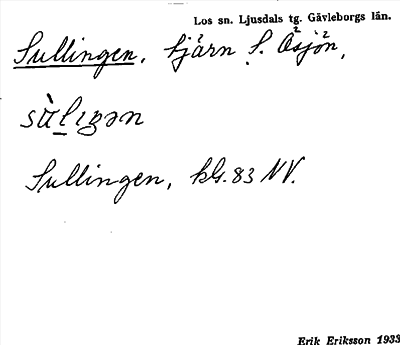 Los sn. Ljusdals tg. Gävleborgs län.
Sullingen, tjärn S. Åsjön,
Sullingen, kbl. 83 NV.
Erik Eriksson 1933